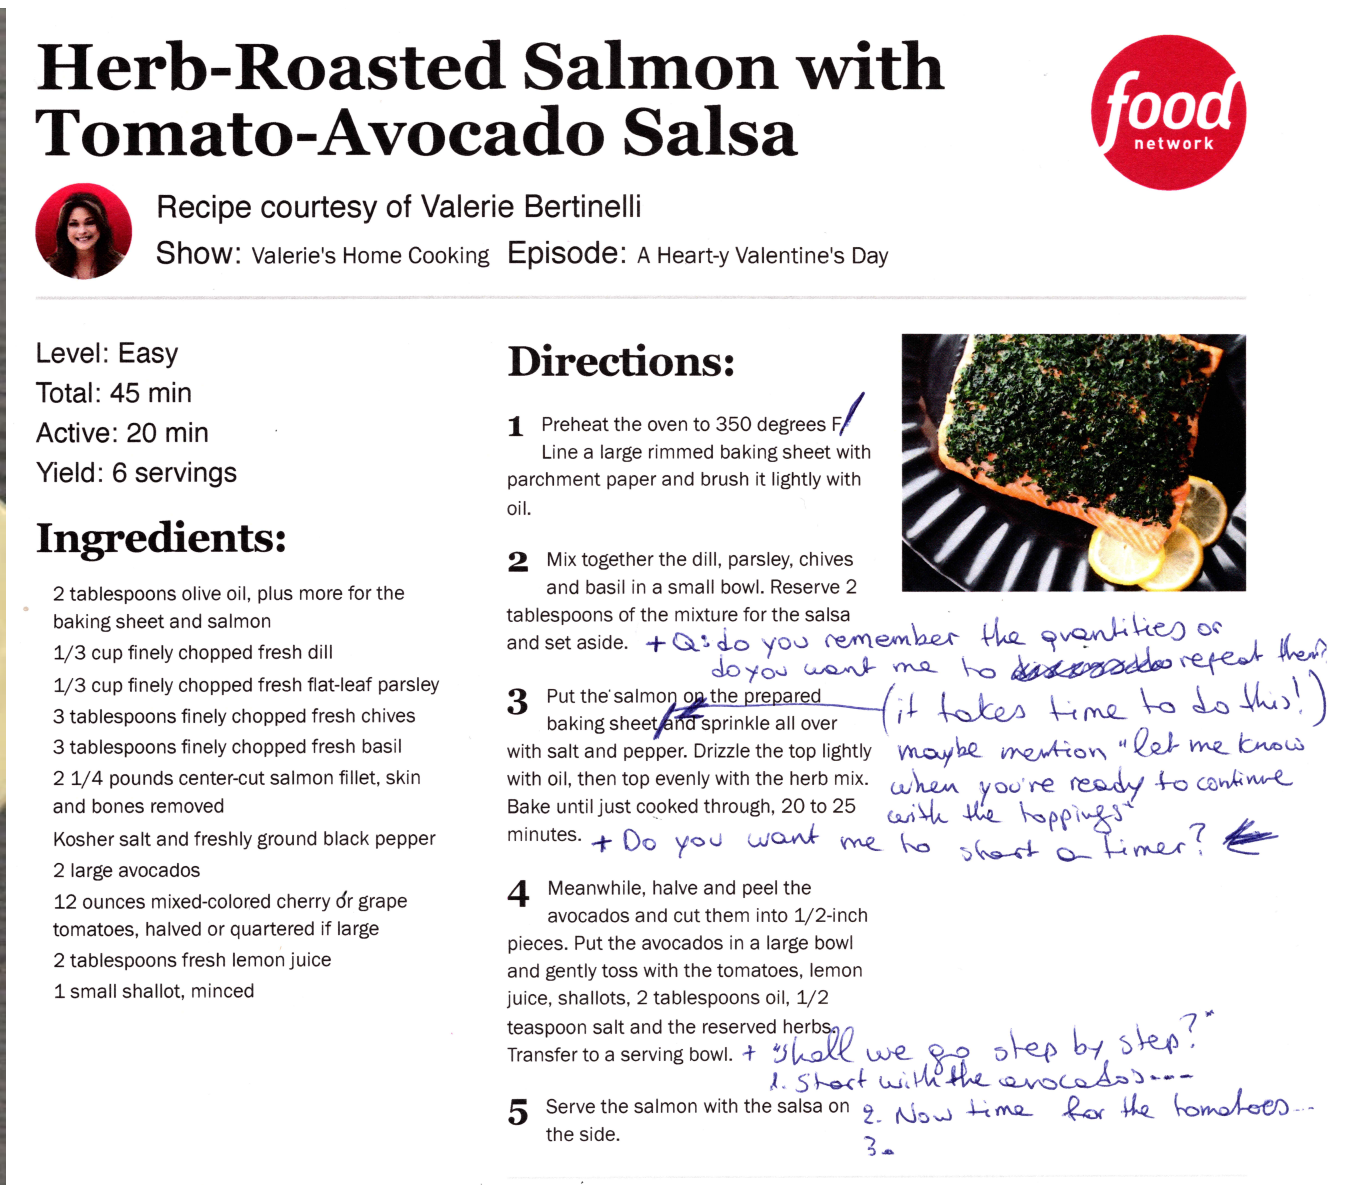 Herb-Roasted Salmon with
Tomato-Avocado Salsa
food
network
Recipe courtesy of Valerie Bertinelli
Show: Valerie's Home Cooking Episode: A Heart-y Valentine's Day
Level: Easy
Total: 45 min
Active: 20 min
Yield: 6 servings
Ingredients:
2 tablespoons olive oil, plus more for the
baking sheet and salmon
1/3 cup finely chopped fresh dill
1/3 cup finely chopped fresh flat-leaf parsley
3 tablespoons finely chopped fresh chives
3 tablespoons finely chopped fresh basil
2 1/4 pounds center-cut salmon fillet, skin
and bones removed
Kosher salt and freshly ground black pepper
2 large avocados
12 ounces mixed-colored cherry or grape
tomatoes, halved or quartered if large
2 tablespoons fresh lemon juice
1 small shallot, minced
Directions:
1 Preheat the oven to 350 degrees F/
Line a large rimmed baking sheet with
parchment paper and brush it lightly with
oil.
2 Mix together the dill, parsley, chives
and basil in a small bowl. Reserve 2
tablespoons of the mixture for the salsa
and set aside. + Q: do you remember the quantities or
do you want me to repeat them?
3 Put the salmon on the prepared
baking sheet/and sprinkle all over
with salt and pepper. Drizzle the top lightly
with oil, then top evenly with the herb mix.
Bake until just cooked through, 20 to 25
minutes.
(it takes time to do this!)
maybe mention "let me know
when you're ready to continue
with the toppings"
+ Do you want me to start a timer?
4 Meanwhile, halve and peel the
avocados and cut them into 1/2-inch
pieces. Put the avocados in a large bowl
and gently toss with the tomatoes, lemon
juice, shallots, 2 tablespoons oil, 1/2
teaspoon salt and the reserved herbs.
Transfer to a serving bowl. + "Shall we go step by step?"
1. Start with the avocados ---
5 Serve the salmon with the salsa on
the side.
2. Now time for the tomatoes...
3.